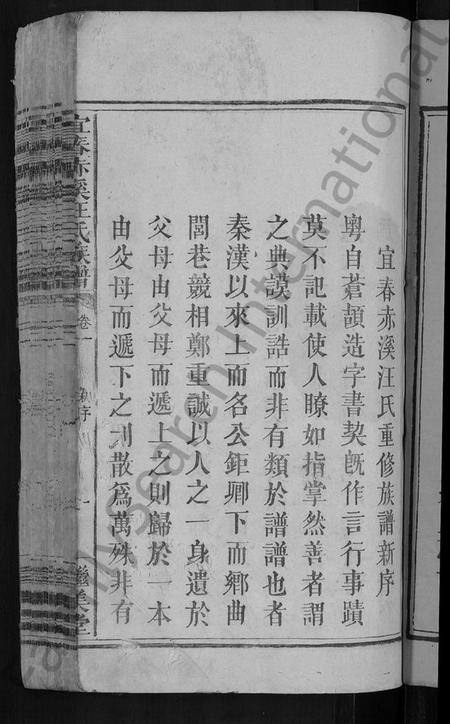 宜春赤溪汪氏重修族譜新序
粵自蒼頡造字書契旣作言行事蹟
莫不記載使人瞭如指掌然善者謂
之典謨訓誥而非有類於譜譜也者
秦漢以來上而名公鉅卿下而鄉曲
閭巷競相鄭重誠以人之一身遺於
父母由父母而遞上之則歸於一本
由父母而遞下之則散爲萬殊非有
宜春赤溪汪氏族譜 卷一 序 一